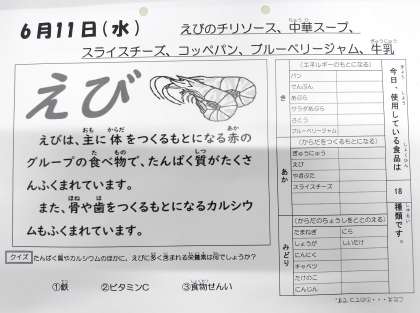 6月11日(水)
えびのチリソース、中華スープ、
スライスチーズ、コッペパン、ブルーベリージャム、牛乳
えび
えびは、主に体をつくるもとになる赤の
グループの食べ物で、たんぱく質がたくさ
んふくまれています。
また、骨や歯をつくるもとになるカルシウ
ムもふくまれています。
クイズ
たんぱく質やカルシウムのほかに、えびに多く含まれる栄養素は何でしょうか?
①鉄 ②ビタミンC ③食物せんい
今日、使用している食品は
18
種類です。
き
(エネルギーのもとになる)
パン
でんぷん
あぶら
サラダあぶら
さとう
ブルーベリージャム
あか
(からだをつくるもとになる)
ぎゅうにゅう
えび
やきぶた
スライスチーズ
みどり
(からだのちょうしをととのえる)
たまねぎ にら
しょうが しいたけ
にんにく
キャベツ
たけのこ
にんじん